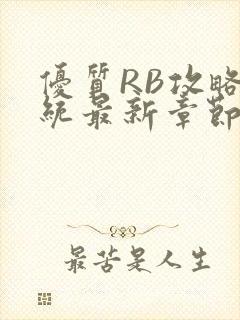 優質RB攻略
統最新章節
最苦是人生